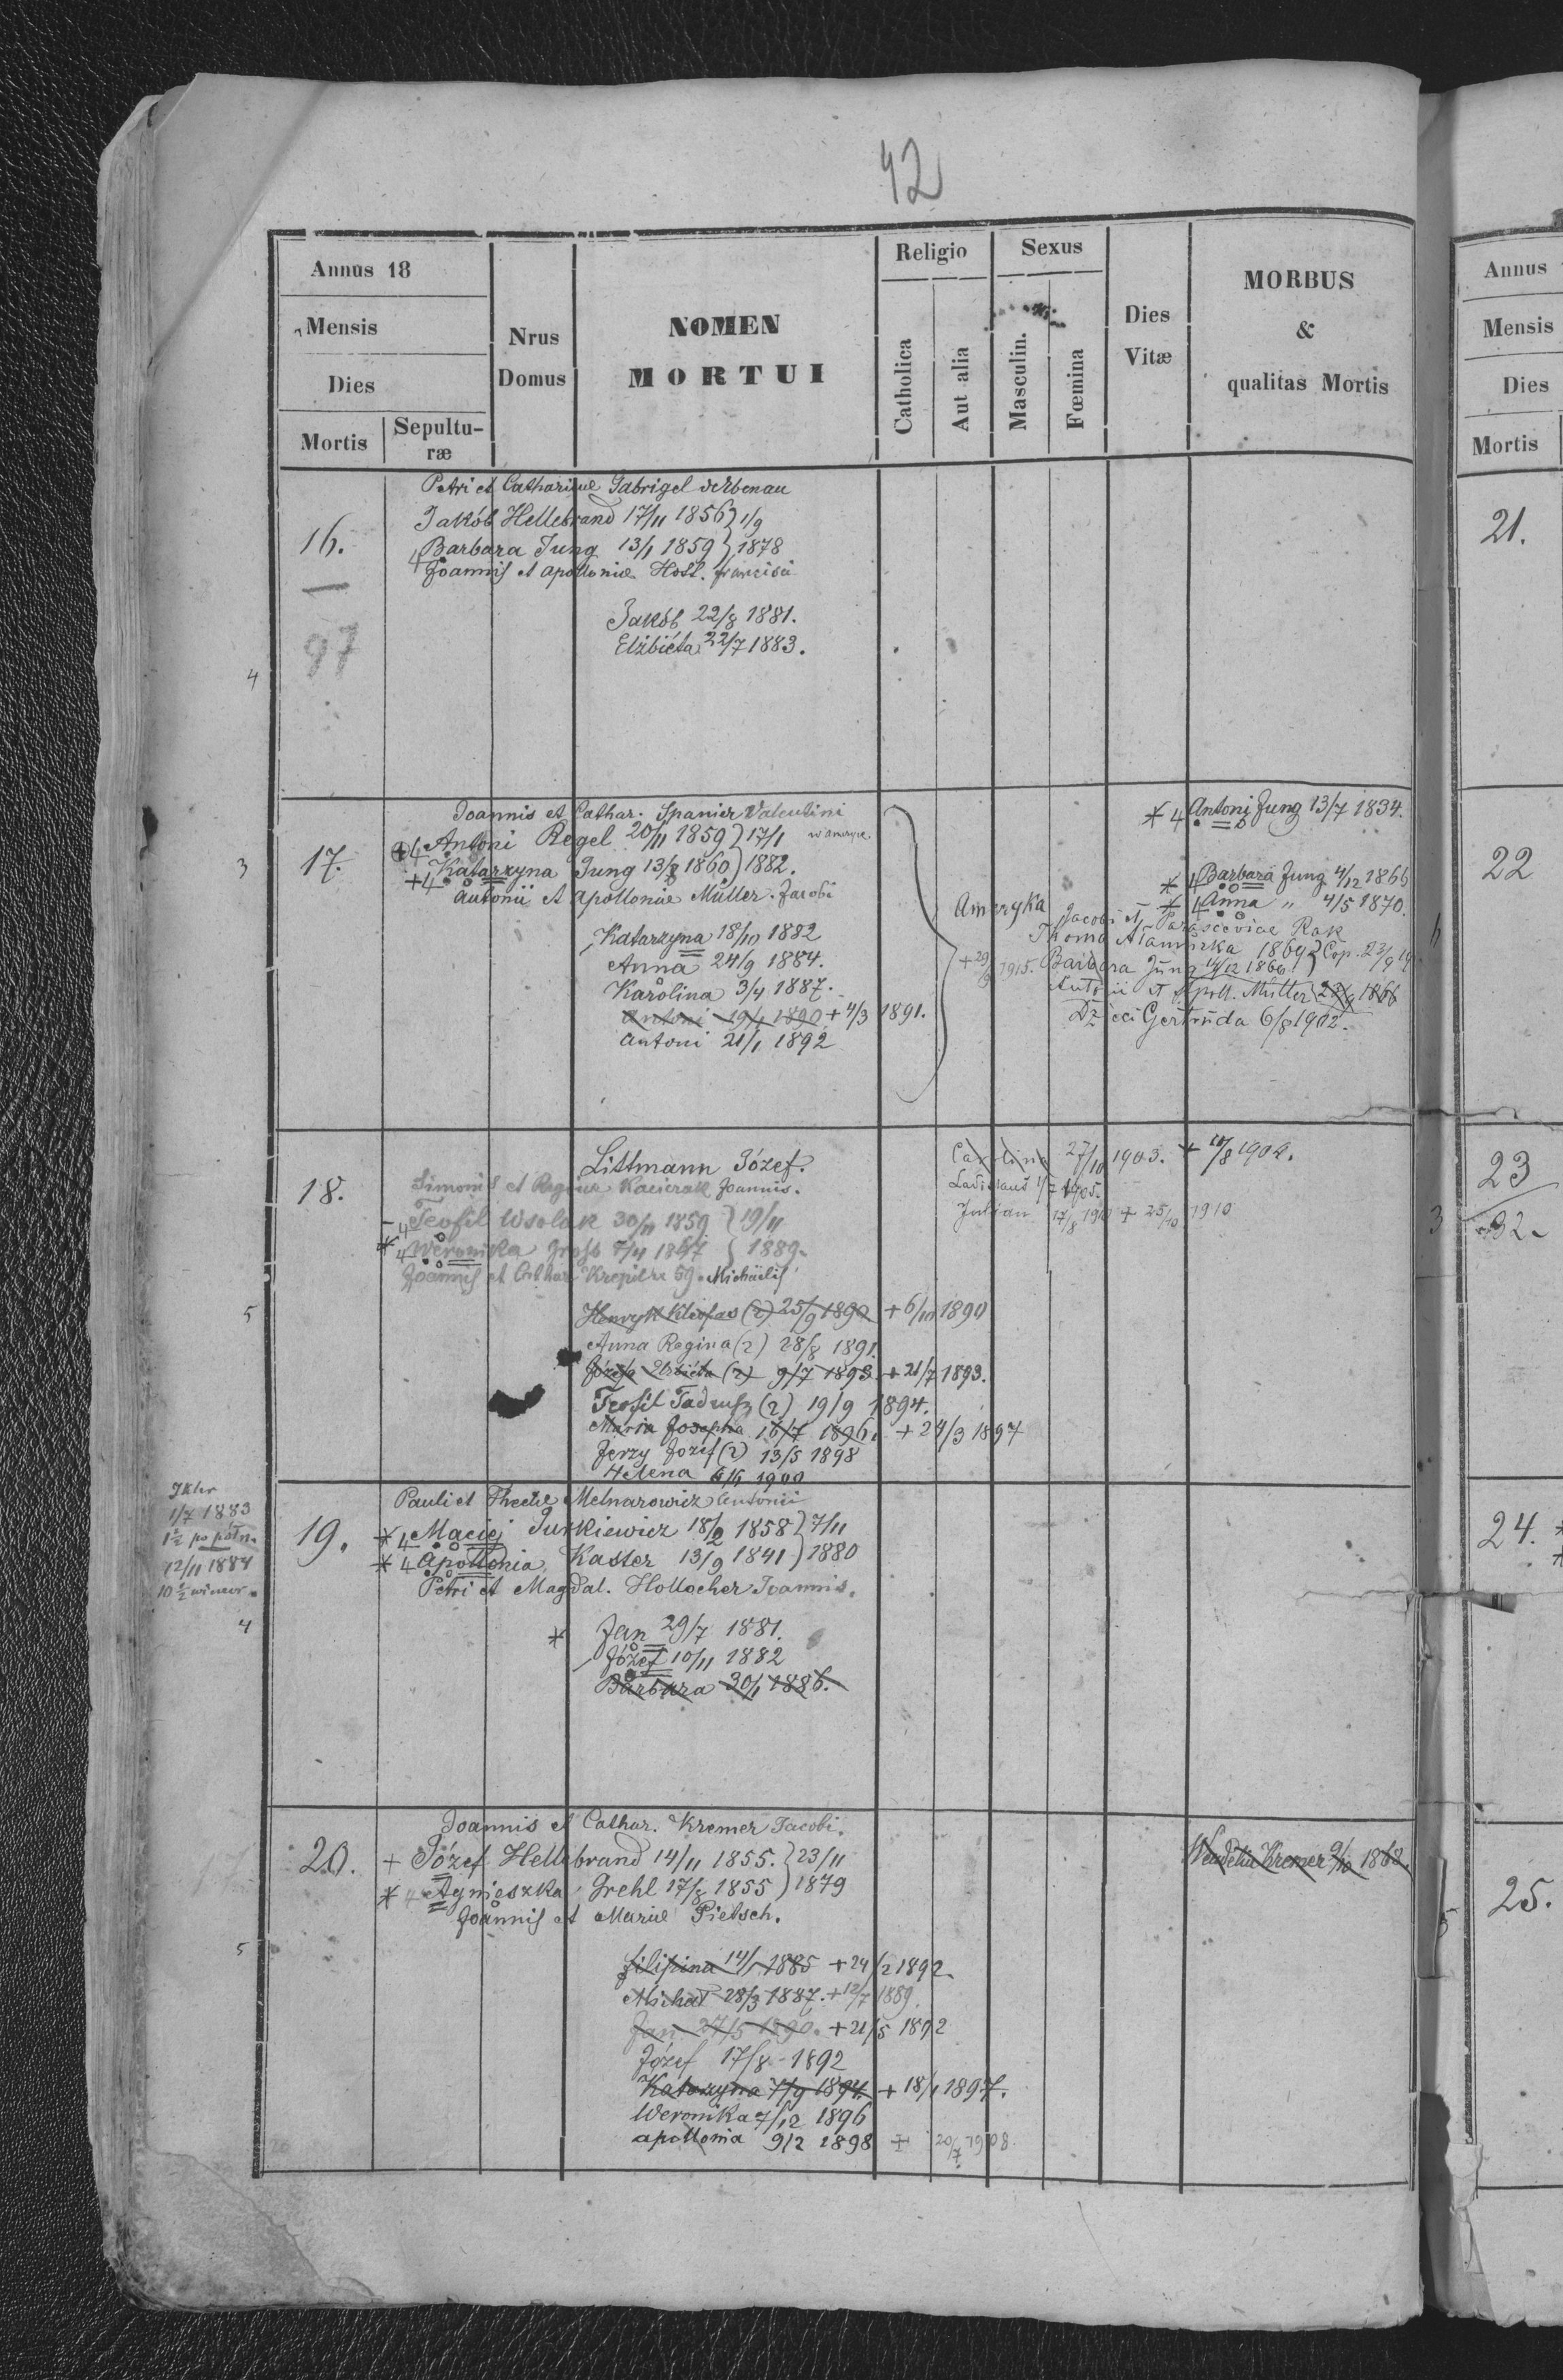 42
Annus 18
Mensis
Dies
Mortis
Sepultu-
ræ
Nrus
Domus
NOMEN
MORTUI
Religio
Catholica
Aut alia
Sexus
Masculin.
Fœmina
Dies
Vitæ
MORBUS
&
qualitas Mortis
Petri et Catharinae Gabrigel
16. Jakób Hellebrand 17/11 1856 } 1/9
4 Barbara Jung 13/1 1859 } 1878
Joannis et Apolloniae Francisci
Jakób 22/8 1881.
Elżbiéta 22/7 1883.
97
4
Joannis et Cathar. Spanier Valentini
3 17. +4 Antoni Regel 20/11 1859 } 17/1 w ameryce.
+4 Katarzyna Jung 13/8 1860 } 1882.
Antonii et Apolloniae Müller Jacobi
Katarzyna 18/10 1882
Anna 24/9 1884.
Karolina 3/4 1887.
Antoni 19/1 1890 + 4/3 1891.
Antoni 21/1 1892
Ameryka
* 4 Antoni Jung 13/7 1834.
* 4 Barbara Jung 4/12 1866
* 4 Anna " 4/5 1870.
Jacobi et Parasceviae Rak
Thoma 1869 } Cop. 23/9
+ 29/9 1915. Barbara Jung 4/12 1866
Antonii et Apoll. Müller 1866
Dzieci Gertruda 6/8 1902.
18. Littmann Józef.
Simonis et Reginae Kacierak Joannis.
4 Teofil Wsolak 30/11 1859 } 19/11
* 4 Weronika Gross 7/4 1867 } 1889.
Joannis et Cathar. 59. Michaelis
Henryk Kleofas (2) 25/9 1890 + 6/10 1890
Anna Regina (2) 28/8 1891.
Józefa Elżbiéta (2) 9/7 1893 + 21/7 1893.
Teofil Tadeusz (2) 19/9 1894.
Maria Josepha 16/7 1896. + 24/3 1897
Jerzy Jozef (2) 13/5 1898
Helena 1900
5
Carolina 27/10 1903. + 11/8 1904.
Ladislaus 1/7 1905.
Julian 17/8 1910 + 25/10 1910
1/7 1883
1 1/2 po połn.
12/11 1884
4
Pauli et Theclae Melnarowicz Antonii
19. * 4 Maciej Jurkiewicz 18/2 1858 } 7/11
* 4 Apollonia Kaster 13/9 1841 } 1880
Petri et Magdal. Hollocher Joannis.
* Jan 29/7 1881.
Józef 10/11 1882
Barbara 30/1 1886.
Joannis et Cathar. Kremer Jacobi.
20. + Józef Hellebrand 14/11 1855. } 23/11
* 4 Agnieszka Grehl 17/8 1855 } 1879
Joannis et Mariae Pietsch.
Filipina 14/1 1885 + 24/2 1892
Michał 28/3 1887. + 12/7 1889.
Jan 27/5 1890. + 21/5 1892
Józef 17/8 1892
Katarzyna 7/9 1894. + 18/1 1897.
Weronika 7/12 1896
Apollonia 9/2 1898 + 20/7 1908
5
Wendelin Kremer 9/10 1868.
Annus
Mensis
Dies
Mortis
21.
22
23
32
24.
25.